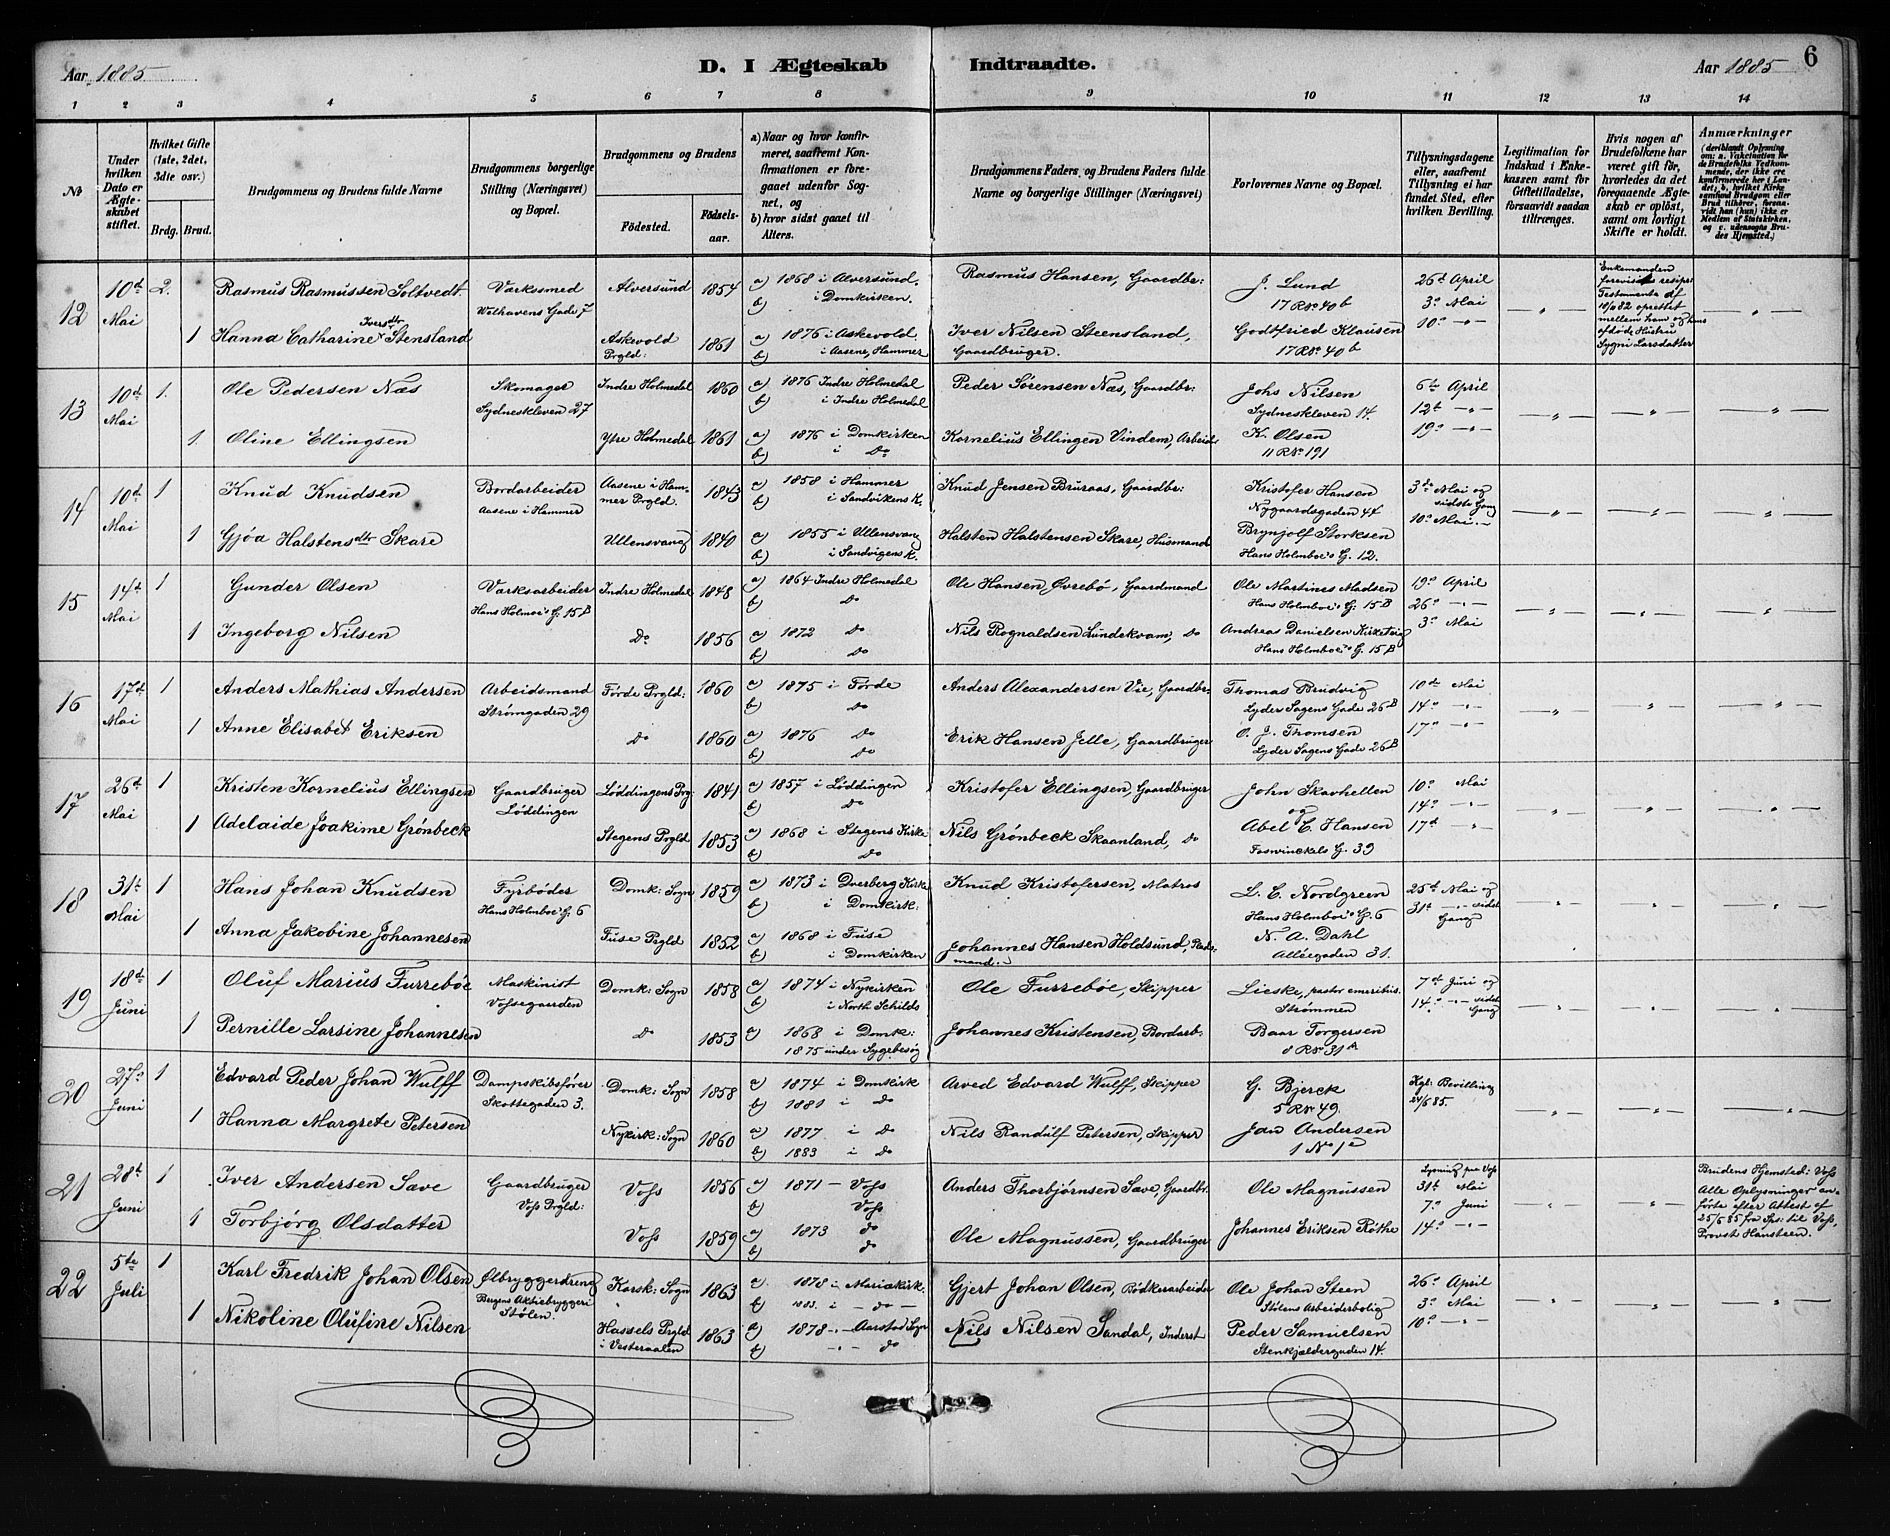 Aar 1885
D. I Ægteskab Indtraadte.
Aar 1885 6
1 2 3 4 5 6 7 8 9 10 11 12 13 14
No
Under hvilken Dato er Ægteskabet stiftet.
Hvilket Gifte (1ste, 2det, 3die osv.)
Brdg. Brud.
Brudgommens og Brudens fulde Navne
Brudgommens borgerlige Stilling (Næringsvei) og Bopæl.
Brudgommens og Brudens
Födested. Födselsaar.
a) Naar og hvor konfirmeret, saafremt Konfirmationen er foregaaet udenfor Sognet, og
b) hvor sidst gaaet til Alters.
Brudgommens Faders, og Brudens Faders fulde Navne og borgerlige Stillinger (Næringsvei)
Forlovernes Navne og Bopæl.
Tillysningsdagene eller, saafremt Tillysning ei har fundet Sted, efter hvilken Bevilling.
Legitimation for Indskud i Enkekassen samt for Giftetilladelse, forsaavidt saadan tiltrænges.
Hvis nogen af Brudefolkene har været gift för, hvorledes da det foregaaende Ægteskab er oplöst, samt om lovligt Skifte er holdt.
Anmærkninger (deriblandt Oplysning om: a. Vakcination for de Brudefolks Vedkommende, der ikke ere konfirmerede her i Landet; b. hvilket Kirkesamfund Brudgom eller Brud tilhörer, forsaavidt han (hun) ikke er Medlem af Statskirken, og c. udensogns Brudes Hjemsted.)
12 10de Mai 2. Rasmus Rasmussen Soltvedt Værksmed Welhavens Gade 7 Alversund 1854 a) 1868 i Alversund. b) i Domkirken. Rasmus Hansen, Gaardbr: J. Lund 17 R No 40 b 26de April 3o Mai 10o -"- Enkemanden Testamente af 10/4 82 oprettet mellem ham og hans afdøde Hustru Sygni Larsdatter
1 Hanna Catharine Iversdtr Stensland Askevold Prgld: 1861 a) 1876 i Askevold. b) i Aasene, Hammer Iver Nilsen Steensland, Gaardbruger. Godtfried Klausen 17 R No 40 b
13 10de Mai 1. Ole Pedersen Næs Skomager Sydneskleven 27 Indre Holmedal 1860 a) 1876 Indre Holmedal b) i Indre Holmedal Peder Sørensen Næs, Gaardbr: Johs Nilsen Sydneskleven 14. 6te April 12te -"- 19o -"-
1 Oline Ellingsen Ytre Holmedal 1861 a) 1876 i Domkirken b) i Do Kornelius Ellingen Vindem, Arbeider K. Olsen 11 R No 191
14 10de Mai 1 Knud Knudsen Bordarbeider Aasene i Hammer Aasene i Hammer Prgld. 1843 a) 1858 i Hammer b) i Sandvikens K. Knud Jensen Bruraas, Gaardbr: Kristofer Hansen Nygaardsgaden 44 3de Mai og sidste Gang 10o Mai.
1 Gjøa Halstensdtr Skare Ullensvang 1840 a) 1855 i Ullensvang b) i Sandvigens K. Halsten Halstensen Skare, Husmand Brynjolf Storksen Hans Holmboe's G. 12.
15 14de Mai 1 Gunder Olsen Værksarbeider Hans Holmoe's G. 15 B Indre Holmedal 1848 a) 1864 Indre Holmedal b) Do Ole Hansen Øvrebø, Gaardmand Ole Martines Madsen Hans Holmboe's G: 15 B 19o April 26o -"- 3o Mai
1 Ingeborg Nilsen Do 1856 a) 1872 Do b) Do Nils Rognaldsen Lundekvam, Do Andreas Danielsen Hans Holmboe's G. 15 B
16 17de Mai 1 Anders Mathias Andersen Arbeidsmand Strømgaden 29 Førde Prgld: 1860 a) 1875 i Førde b) Do Anders Alexandersen Vie, Gaardbr. Thomas Brudvig Lyder Sagens Gade 26 B 10de Mai 14o -"- 17o -"-
1 Anne Elisabet Eriksen Do 1860 a) 1876 Do b) Do Erik Hansen Jelle, Gaardbruger O. J. Thomsen Lyder Sagens Gade 26 B
17 26de Mai 1 Kristen Kornelius Ellingsen Gaardbruger Løddingen Løddingens Prg 1841 a) 1857 i Løddingen b) Do Kristofer Ellingsen, Gaardbruger John Skavhellen og 10o Mai 14o -"- 17de -"-
1 Adelaide Joakime Grønbeck Stegens Prgld 1853 a) 1868 i Stegens Kirke b) Do Nils Grønbeck Skaanland, Do Abel C. Hansen Foswinckels G. 39
18 31te Mai 1 Hans Johan Knudsen Fyrbøder Hans Holmboe's G. 6 Domk: Sogn 1859 a) 1873 i Dverberg Kirke b) i Domkirk: Knud Kristofersen, Matros L. C. Nordgreen Hans Holmboe's G. 6 25de Mai og 31te -"- sidste Gang
1 Anna Jakobine Johannesen Fuse Prgld 1852 a) 1868 i Fuse b) i Domkirken Johannes Hansen Holdsund, mand. N. A. Dahl Alléegaden 31.
19 18de Juni 1 Oluf Marius Furrebøe Maskinist Vossegaarden Domk: Sogn 1858 a) 1874 i Nykirken b) i North Schilds Ole Furrebøe, Skipper Lieske, pastor emeritus. Strømmen 7de Juni og 14o -"- sidste Gang
1 Pernille Larsine Johannesen Do 1853 a) 1868 i Domk: 1875 under Sygebesøg Johannes Kristensen, Bordarb. Baar Torgersen 8 R No 31 a
20 27o Juni 1 Edvard Peder Johan Wulff Dampskibsfører Skottegaden 3. Domk: Sogn 1858 a) 1874 i Domkirk b) 1881 i Do Arved Edvard Wulff, Skipper G. Bjerck 5 R No 49. Kgl: Bevilling 24/6 85.
1 Hanna Margrete Petersen Nykirk: Sogn 1860 a) 1877 i Do b) 1883 i Do Nils Randulf Petersen, Skipper Jan Andersen 1 No 1 e
21 28de Juni 1 Iver Andersen Save Gaardbruger Voss Prgld: Voss 1856 a) 1871 - Voss b) Voss Anders Thorbjørnsen Save, Gaardbr. Ole Magnussen Lysning paa Voss 31te Mai 7o Juni 14o -"- Brudens Hjemsted: Voss Alle Oplysninger anførte efter Attest af 25/6 85 fra Spr: til Voss, Provst Hansteen.
1 Torbjørg Olsdatter Voss 1859 a) 1873 do b) do Ole Magnussen, Gaardbruger Johannes Eriksen Røthe
22 5te Juli 1 Karl Fredrik Johan Olsen Ølbryggerdreng Bergens Aktiebryggeri Stølen. Korsk: Sogn 1863 a. 1878 i Mariakirk. b) 1883. i - do - Gjert Johan Olsen, Bødkerarbeider Ole Johan Steen Stølens Arbeiderbolig 26o April 3o Mai 10o -"-
1 Nikoline Olufine Nilsen Hassels Prgld i Vesteraalen 1863 a) 1878 -"- Aarstad Sogn b) -"- do Nils Nilsen Sandal, Inderst Peder Samuelsen Stenkjældergaden 14.